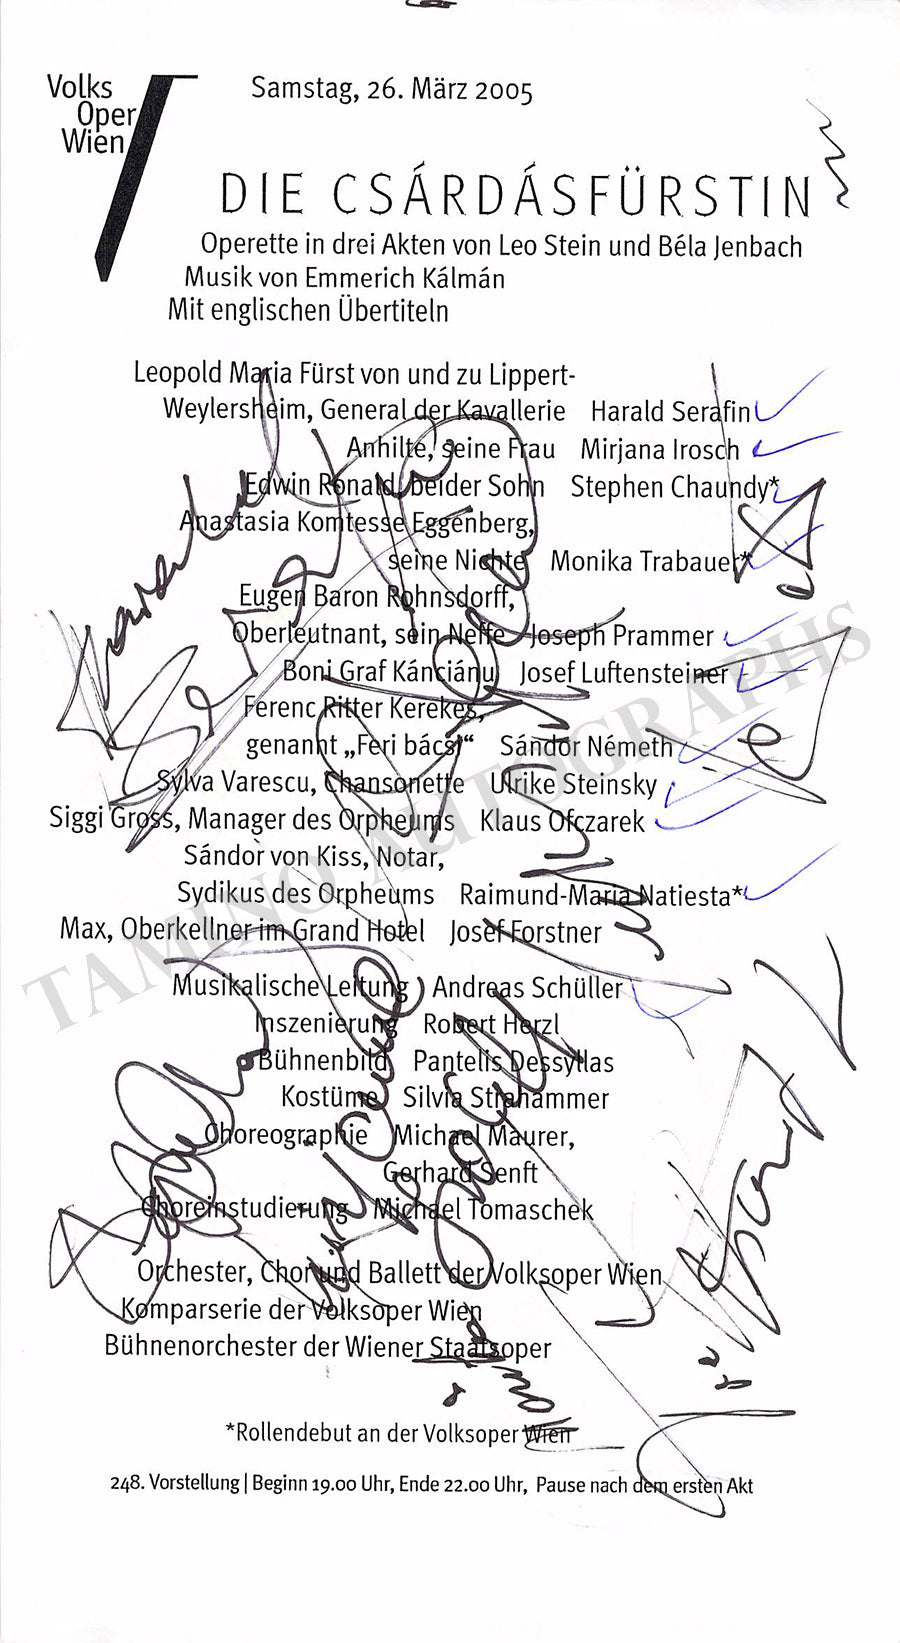 Volks
Oper
Wien
Samstag, 26. März 2005
DIE CSÁRDÁSFÜRSTIN
Operette in drei Akten von Leo Stein und Béla Jenbach
Musik von Emmerich Kálmán
Mit englischen Übertiteln
Leopold Maria Fürst von und zu Lippert-
Weylersheim, General der Kavallerie Harald Serafin
Anhilte, seine Frau Mirjana Irosch
Edwin Ronald, beider Sohn Stephen Chaundy*
Anastasia Komtesse Eggenberg,
seine Nichte Monika Trabauer*
Eugen Baron Rohnsdorff,
Oberleutnant, sein Neffe Joseph Prammer
Boni Graf Kánciánu Josef Luftensteiner
Ferenc Ritter Kerekes,
genannt „Feri bácsi“ Sándor Németh
Sylva Varescu, Chansonette Ulrike Steinsky
Siggi Gross, Manager des Orpheums Klaus Ofczarek
Sándor von Kiss, Notar,
Sydikus des Orpheums Raimund-Maria Natiesta*
Max, Oberkellner im Grand Hotel Josef Forstner
Musikalische Leitung Andreas Schüller
Inszenierung Robert Herzl
Bühnenbild Pantelis Dessyllas
Kostüme Silvia Strahammer
Choreographie Michael Maurer,
Gerhard Senft
Choreinstudierung Michael Tomaschek
Orchester, Chor und Ballett der Volksoper Wien
Komparserie der Volksoper Wien
Bühnenorchester der Wiener Staatsoper
*Rollendebut an der Volksoper Wien
248. Vorstellung | Beginn 19.00 Uhr, Ende 22.00 Uhr, Pause nach dem ersten Akt
TAMINO AUTOGRAPHS